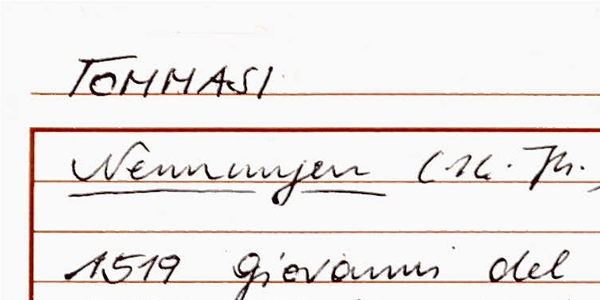 TOMMASI
Nennungen (16. Jh.)
1519 Giovanni del